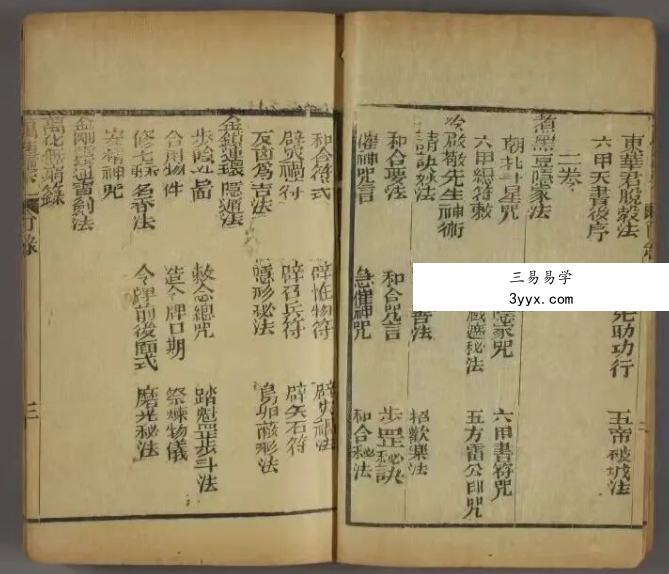 東華君脫殼法 助功行 五帝破城法
六甲天書後序
二卷
煮黑豆隱家法
朝北斗星咒 隱家咒 六甲書符咒
六甲總符敕 藏遁秘法 五方雷公印咒
冷啟敬先生神術
請訣妙法 善法 招歡樂法
和合要法 和合咒言 步罡秘訣
催神咒言 急催神咒 和合秘法
和合符式 辟怪物符 辟 禍法
辟災禍符 辟召兵符 辟矢石符
反凶為吉法 隱形秘法 烏卵蔽形法
金鎖連環隱遁法
步陰斗畐 敕念總咒 踏魁罡步斗法
合用物件 造令牌日期 祭煉物儀
修七 名香法 令牌前後面式 磨光秘法
 精神咒
金剛隱遁寶劍法
萬化無窮錄
目錄 三
三易易学
3yyx.com